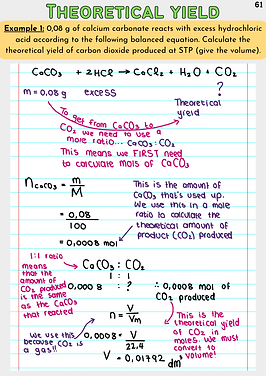 THEORETICAL YIELD
61
Example 1: 0,08 g of calcium carbonate reacts with excess hydrochloric
acid according to the following balanced equation. Calculate the
theoretical yield of carbon dioxide produced at STP (give the volume).
CaCO₃ + 2HCl → CaCl₂ + H₂O + CO₂
m = 0,08 g excess ?
Theoretical
yield
To get from CaCO₃ to
CO₂ we need to use a
mole ratio... CaCO₃ : CO₂
This means we FIRST need
to calculate mols of CaCO₃
nCaCO₃ = m/M
= 0,08/100
= 0,0008 mol
This is the amount of
CaCO₃ that's used up.
We use this in a mole
ratio to calculate the
theoretical amount of
product (CO₂) produced
1:1 ratio
means
that the
amount of
CO₂ produced
is the same
as the CaCO₃
that reacted
CaCO₃ : CO₂
1 : 1
0,0008 : ?
∴ 0,0008 mol of
CO₂ produced
n = V/Vm
0,0008 = V/22,4
V = 0,01792 dm³
We use this
because CO₂ is
a gas!!
This is the
theoretical yield
of CO₂ in
moles. We must
convert to
volume!